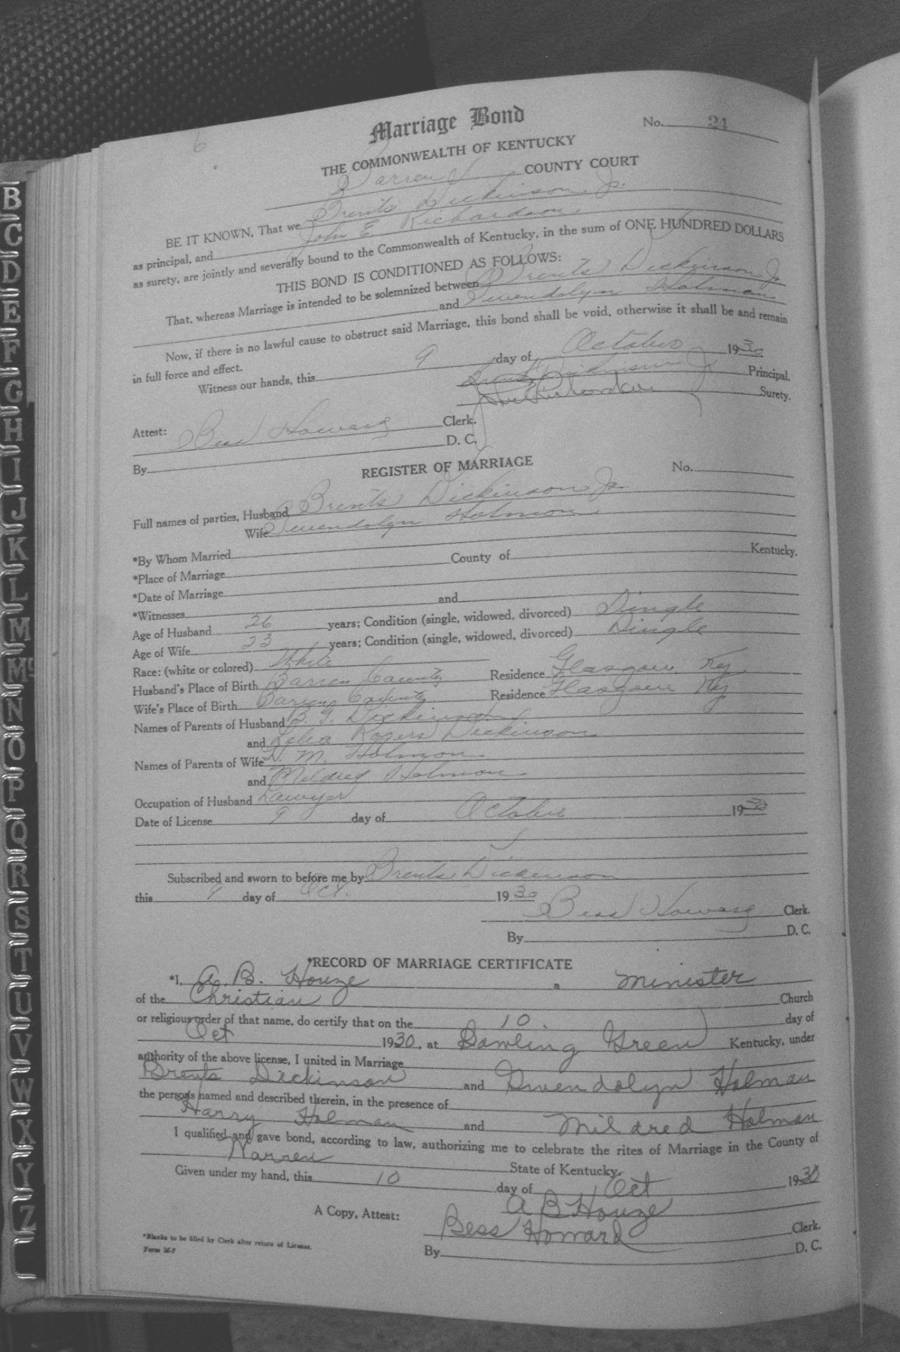 6
Marriage Bond
No. 24
THE COMMONWEALTH OF KENTUCKY
Barren COUNTY COURT
BE IT KNOWN, That we Brents Dickinson Jr.
as principal, and John E Richardson
as surety, are jointly and severally bound to the Commonwealth of Kentucky, in the sum of ONE HUNDRED DOLLARS
THIS BOND IS CONDITIONED AS FOLLOWS:
That, whereas Marriage is intended to be solemnized between Brents Dickinson Jr
and Gwendolyn Holman
Now, if there is no lawful cause to obstruct said Marriage, this bond shall be void, otherwise it shall be and remain
in full force and effect.
Witness our hands, this 9 day of October 1930
Brents Dickinson Jr Principal.
Surety.
Attest: Bess Howard Clerk.
By D. C.
REGISTER OF MARRIAGE
No.
Full names of parties, Husband Brents Dickinson Jr.
Wife Gwendolyn Holman
*By Whom Married
*Place of Marriage County of Kentucky.
*Date of Marriage
*Witnesses and
Age of Husband 26 years; Condition (single, widowed, divorced) Single
Age of Wife 23 years; Condition (single, widowed, divorced) Single
Race: (white or colored) White
Husband's Place of Birth Barren County Residence Glasgow Ky
Wife's Place of Birth Barren County Residence Glasgow Ky
Names of Parents of Husband B. Dickinson
and Lelia Rogers Dickinson
Names of Parents of Wife H. M. Holman
and Mildred Holman
Occupation of Husband Lawyer
Date of License 9 day of October 1930
Subscribed and sworn to before me by Brents Dickinson
this 9 day of Oct. 1930
Bess Howard Clerk.
By D. C.
*RECORD OF MARRIAGE CERTIFICATE
*I, A. B. Houze a Minister
of the Christian Church
or religious order of that name, do certify that on the 10. day of
Oct 1930, at Bowling Green Kentucky, under
authority of the above license, I united in Marriage
Brents Dickinson and Gwendolyn Holman
the persons named and described therein, in the presence of
Harry Holman and Mildred Holman
I qualified and gave bond, according to law, authorizing me to celebrate the rites of Marriage in the County of
Warren State of Kentucky.
Given under my hand, this 10 day of Oct 1930
A B Houze
A Copy, Attest: Bess Howard Clerk.
By D. C.
*Blanks to be filled by Clerk after return of License.
B
C
D
E
F
G
H
I
J
K
L
M
Mc
N
O
P
Q
R
S
T
U
V
W
X
Y
Z